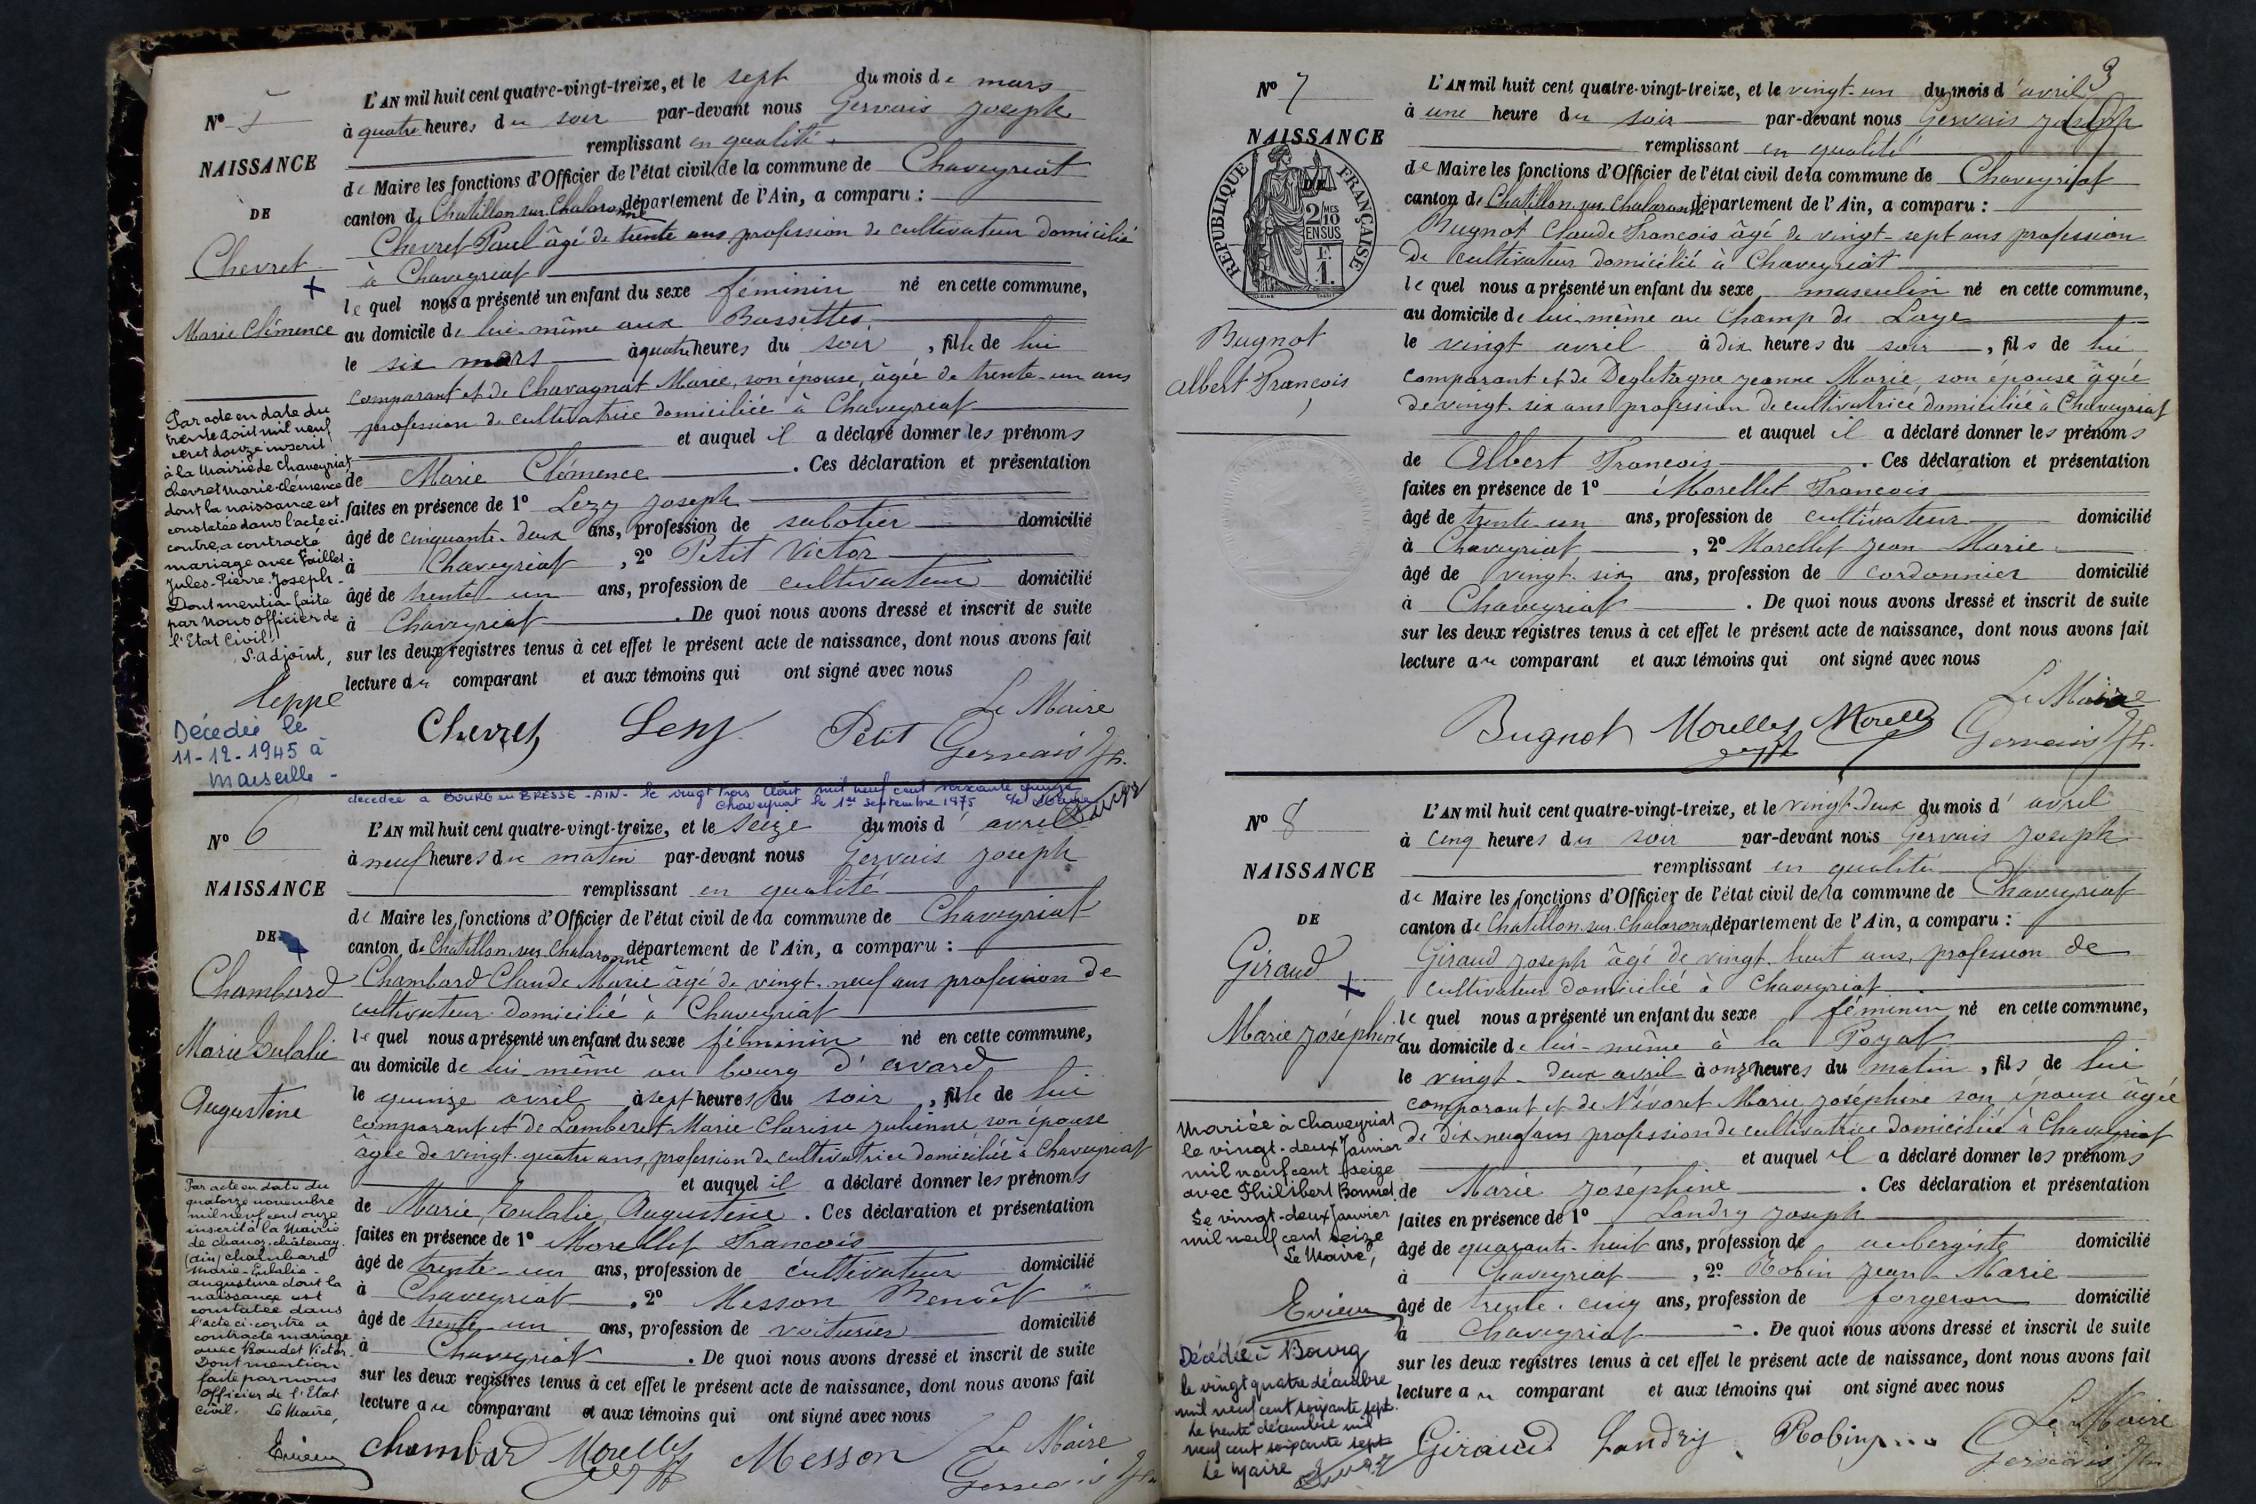 Nº 5
NAISSANCE
DE
Chevret
Marie Clémence
Par acte en date du
trente août mil neuf
cent douze inscrit
à la Mairie de Chaveyriat
Chevret Marie-Clémence
dont la naissance est
constatée dans l'acte ci-
contre, a contracté
mariage avec Faillet
Jules-Pierre-Joseph-
Dont mention faite
par nous officier de
l'Etat Civil,
L'adjoint,
Décédée le
11-12-1945 à
Marseille -
L'AN mil huit cent quatre-vingt-treize, et le sept du mois de mars
à quatre heures du soir par-devant nous Gervais Joseph
remplissant en qualité
de Maire les fonctions d'Officier de l'état civil de la commune de Chaveyriat
canton de Chatillon sur Chalaronne département de l'Ain, a comparu :
Chevret Paul âgé de trente ans profession de cultivateur domicilié
à Chaveyriat
le quel nous a présenté un enfant du sexe féminin né en cette commune,
au domicile de lui-même aux Bassettes
le six mars à quatre heures du soir, fille de lui
comparant et de Chavagnat Marie, son épouse, âgée de trente-un ans
profession de cultivatrice domiciliée à Chaveyriat
et auquel il a déclaré donner les prénoms
de Marie Clémence. Ces déclaration et présentation
faites en présence de 1º Lezy Joseph
âgé de cinquante-deux ans, profession de sabotier domicilié
à Chaveyriat, 2º Petit Victor
âgé de trente-un ans, profession de cultivateur domicilié
à Chaveyriat. De quoi nous avons dressé et inscrit de suite
sur les deux registres tenus à cet effet le présent acte de naissance, dont nous avons fait
lecture au comparant et aux témoins qui ont signé avec nous
Le Maire
Chevret Lezy Petit Gervais Jh.
décédée à BOURG en BRESSE -AIN- le vingt trois Août mil neuf cent soixante quinze
Chaveyriat le 1er septembre 1975 Le Maire
Nº 6
NAISSANCE
DE
Chambard
Marie Eulalie
Augustine
Par acte en date du
quatorze novembre
mil neuf cent onze
inscrit à la Mairie
de Chanoz-Châtenay
(Ain) Chambard
Marie-Eulalie-
Augustine dont la
naissance est
constatée dans
l'acte ci-contre a
contracté mariage
avec Baudet Victor.
Dont mention
faite par nous
Officier de l'Etat
Civil. Le Maire,
Evieux
L'AN mil huit cent quatre-vingt-treize, et le seize du mois d'avril
à neuf heures du matin par-devant nous Gervais Joseph
remplissant en qualité
de Maire les fonctions d'Officier de l'état civil de la commune de Chaveyriat
canton de Chatillon sur Chalaronne département de l'Ain, a comparu :
Chambard Claude Marie âgé de vingt-neuf ans profession de
cultivateur domicilié à Chaveyriat
le quel nous a présenté un enfant du sexe féminin né en cette commune,
au domicile de lui-même au bourg d'avard
le quinze avril à sept heures du soir, fille de lui
comparant et de Lamberet Marie Clarisse Julienne son épouse
âgée de vingt-quatre ans, profession de cultivatrice domiciliée à Chaveyriat
et auquel il a déclaré donner les prénoms
de Marie, Eulalie, Augustine. Ces déclaration et présentation
faites en présence de 1º Morellet François
âgé de trente-un ans, profession de cultivateur domicilié
à Chaveyriat, 2º Messon Benoît
âgé de trente-un ans, profession de voiturier domicilié
à Chaveyriat. De quoi nous avons dressé et inscrit de suite
sur les deux registres tenus à cet effet le présent acte de naissance, dont nous avons fait
lecture au comparant et aux témoins qui ont signé avec nous
Le Maire
Chambard Morellet Messon Gervais Jh
3
Nº 7
NAISSANCE
DE
RÉPUBLIQUE FRANÇAISE
2 MES
10
EN SUS
F.
1.
Bugnot
Albert François
L'AN mil huit cent quatre-vingt-treize, et le vingt-un du mois d'avril
à une heure du soir par-devant nous Gervais Joseph
remplissant en qualité
de Maire les fonctions d'Officier de l'état civil de la commune de Chaveyriat
canton de Chatillon sur Chalaronne département de l'Ain, a comparu :
Bugnot Claude François âgé de vingt-sept ans profession
de cultivateur domicilié à Chaveyriat
le quel nous a présenté un enfant du sexe masculin né en cette commune,
au domicile de lui-même au Champ de Laye
le vingt avril à dix heures du soir, fils de lui
comparant et de Degletagne Jeanne Marie, son épouse âgée
de vingt-six ans profession de cultivatrice domiciliée à Chaveyriat
et auquel il a déclaré donner les prénoms
de Albert François. Ces déclaration et présentation
faites en présence de 1º Morellet François
âgé de trente-un ans, profession de cultivateur domicilié
à Chaveyriat, 2º Morellet Jean-Marie
âgé de vingt-six ans, profession de cordonnier domicilié
à Chaveyriat. De quoi nous avons dressé et inscrit de suite
sur les deux registres tenus à cet effet le présent acte de naissance, dont nous avons fait
lecture au comparant et aux témoins qui ont signé avec nous
Le Maire
Bugnot Morellet Morellet Gervais Jh.
Nº 8
NAISSANCE
DE
Giraud
Marie Joséphine
Mariée à Chaveyriat
le vingt-deux Janvier
mil neuf cent seize
avec Philibert Bonnet.
Le vingt-deux Janvier
mil neuf cent seize
Le Maire,
Evieux
Décédée à Bourg
le vingt quatre décembre
mil neuf cent soixante sept.
Le trente décembre mil
neuf cent soixante sept
Le Maire
L'AN mil huit cent quatre-vingt-treize, et le vingt-deux du mois d'avril
à cinq heures du soir par-devant nous Gervais Joseph
remplissant en qualité
de Maire les fonctions d'Officier de l'état civil de la commune de Chaveyriat
canton de Chatillon sur Chalaronne département de l'Ain, a comparu :
Giraud Joseph âgé de vingt-huit ans, profession de
cultivateur domicilié à Chaveyriat
le quel nous a présenté un enfant du sexe féminin né en cette commune,
au domicile de lui-même à la Poyat
le vingt-deux avril à onze heures du matin, fils de lui
comparant et de Névoret Marie Joséphine son épouse âgée
de dix-neuf ans profession de cultivatrice domiciliée à Chaveyriat
et auquel il a déclaré donner les prénoms
de Marie Joséphine. Ces déclaration et présentation
faites en présence de 1º Landry Joseph
âgé de quarante-huit ans, profession de aubergiste domicilié
à Chaveyriat, 2º Robin Jean-Marie
âgé de trente-cinq ans, profession de forgeron domicilié
à Chaveyriat. De quoi nous avons dressé et inscrit de suite
sur les deux registres tenus à cet effet le présent acte de naissance, dont nous avons fait
lecture au comparant et aux témoins qui ont signé avec nous
Le Maire
Giraud Landry Robin Gervais Jh